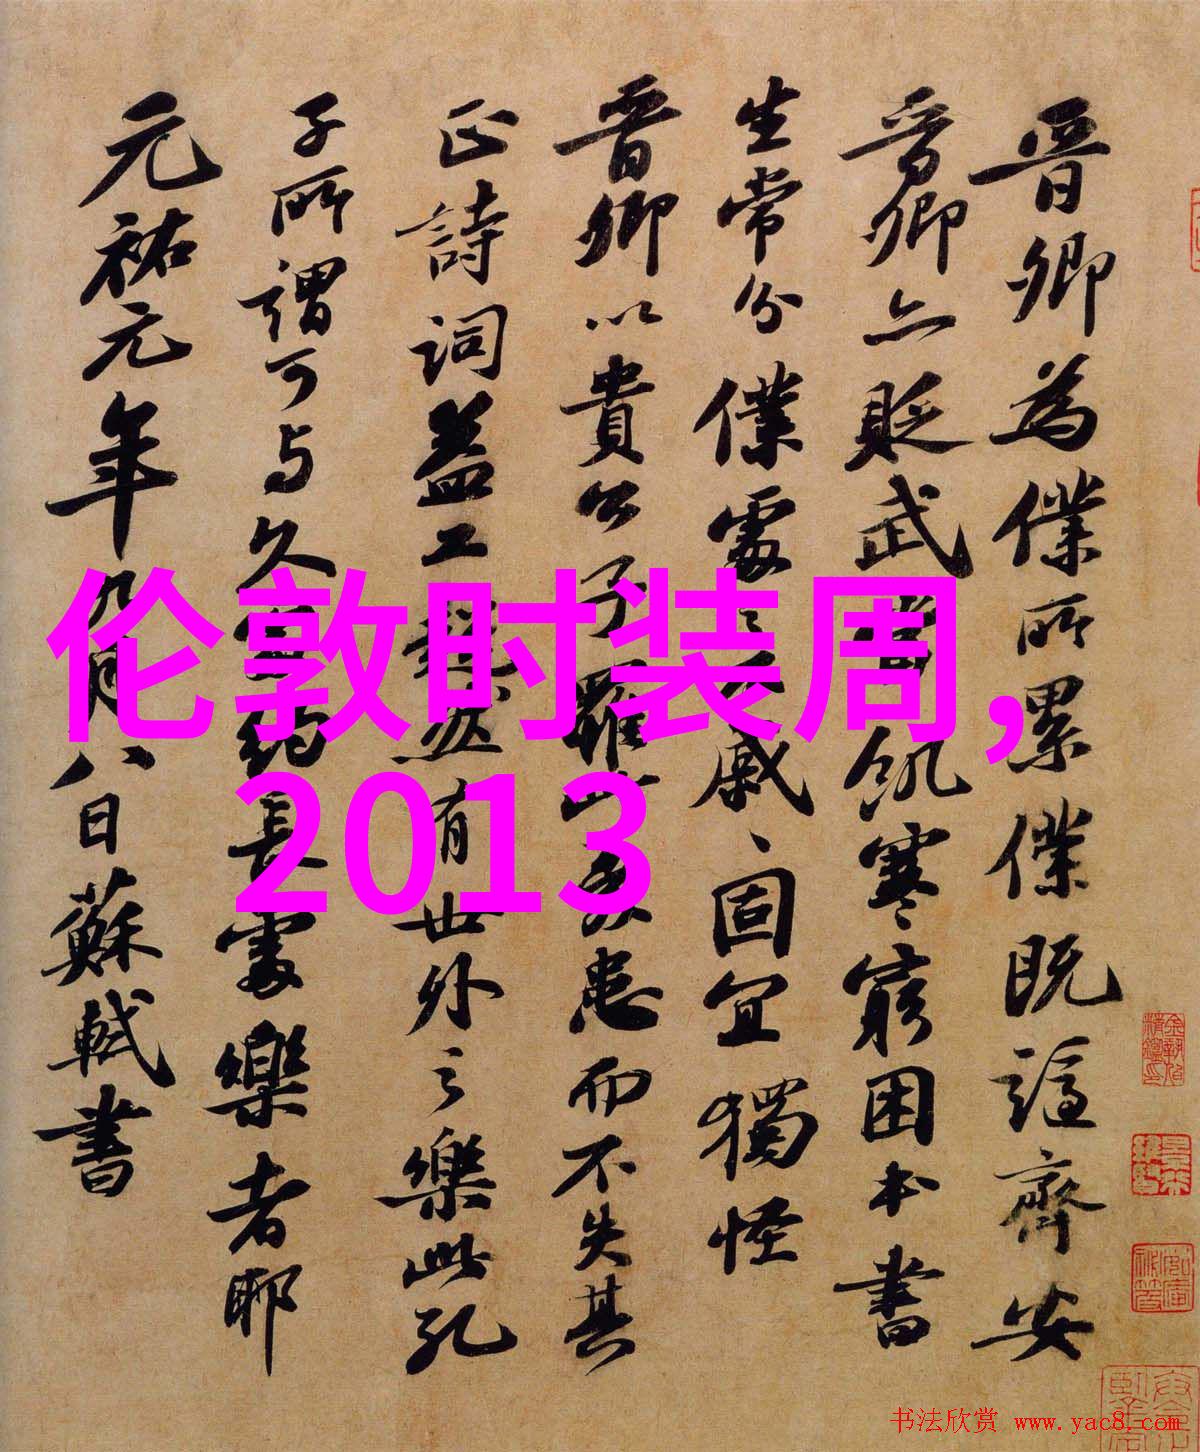 晉卿為僕所累僕既謫齊安
晉卿亦貶武當飢寒窮困本書
生常分僕處之不戚戚固宜獨怪
晉卿以貴公子罹此憂患而不失其
正詩詞益工超然有世外之樂此孔
子所謂可与久處約長處樂者耶
元祐元年九月八日蘇軾書
伦敦时装周,
2013
书法欣赏 www.yac8.com